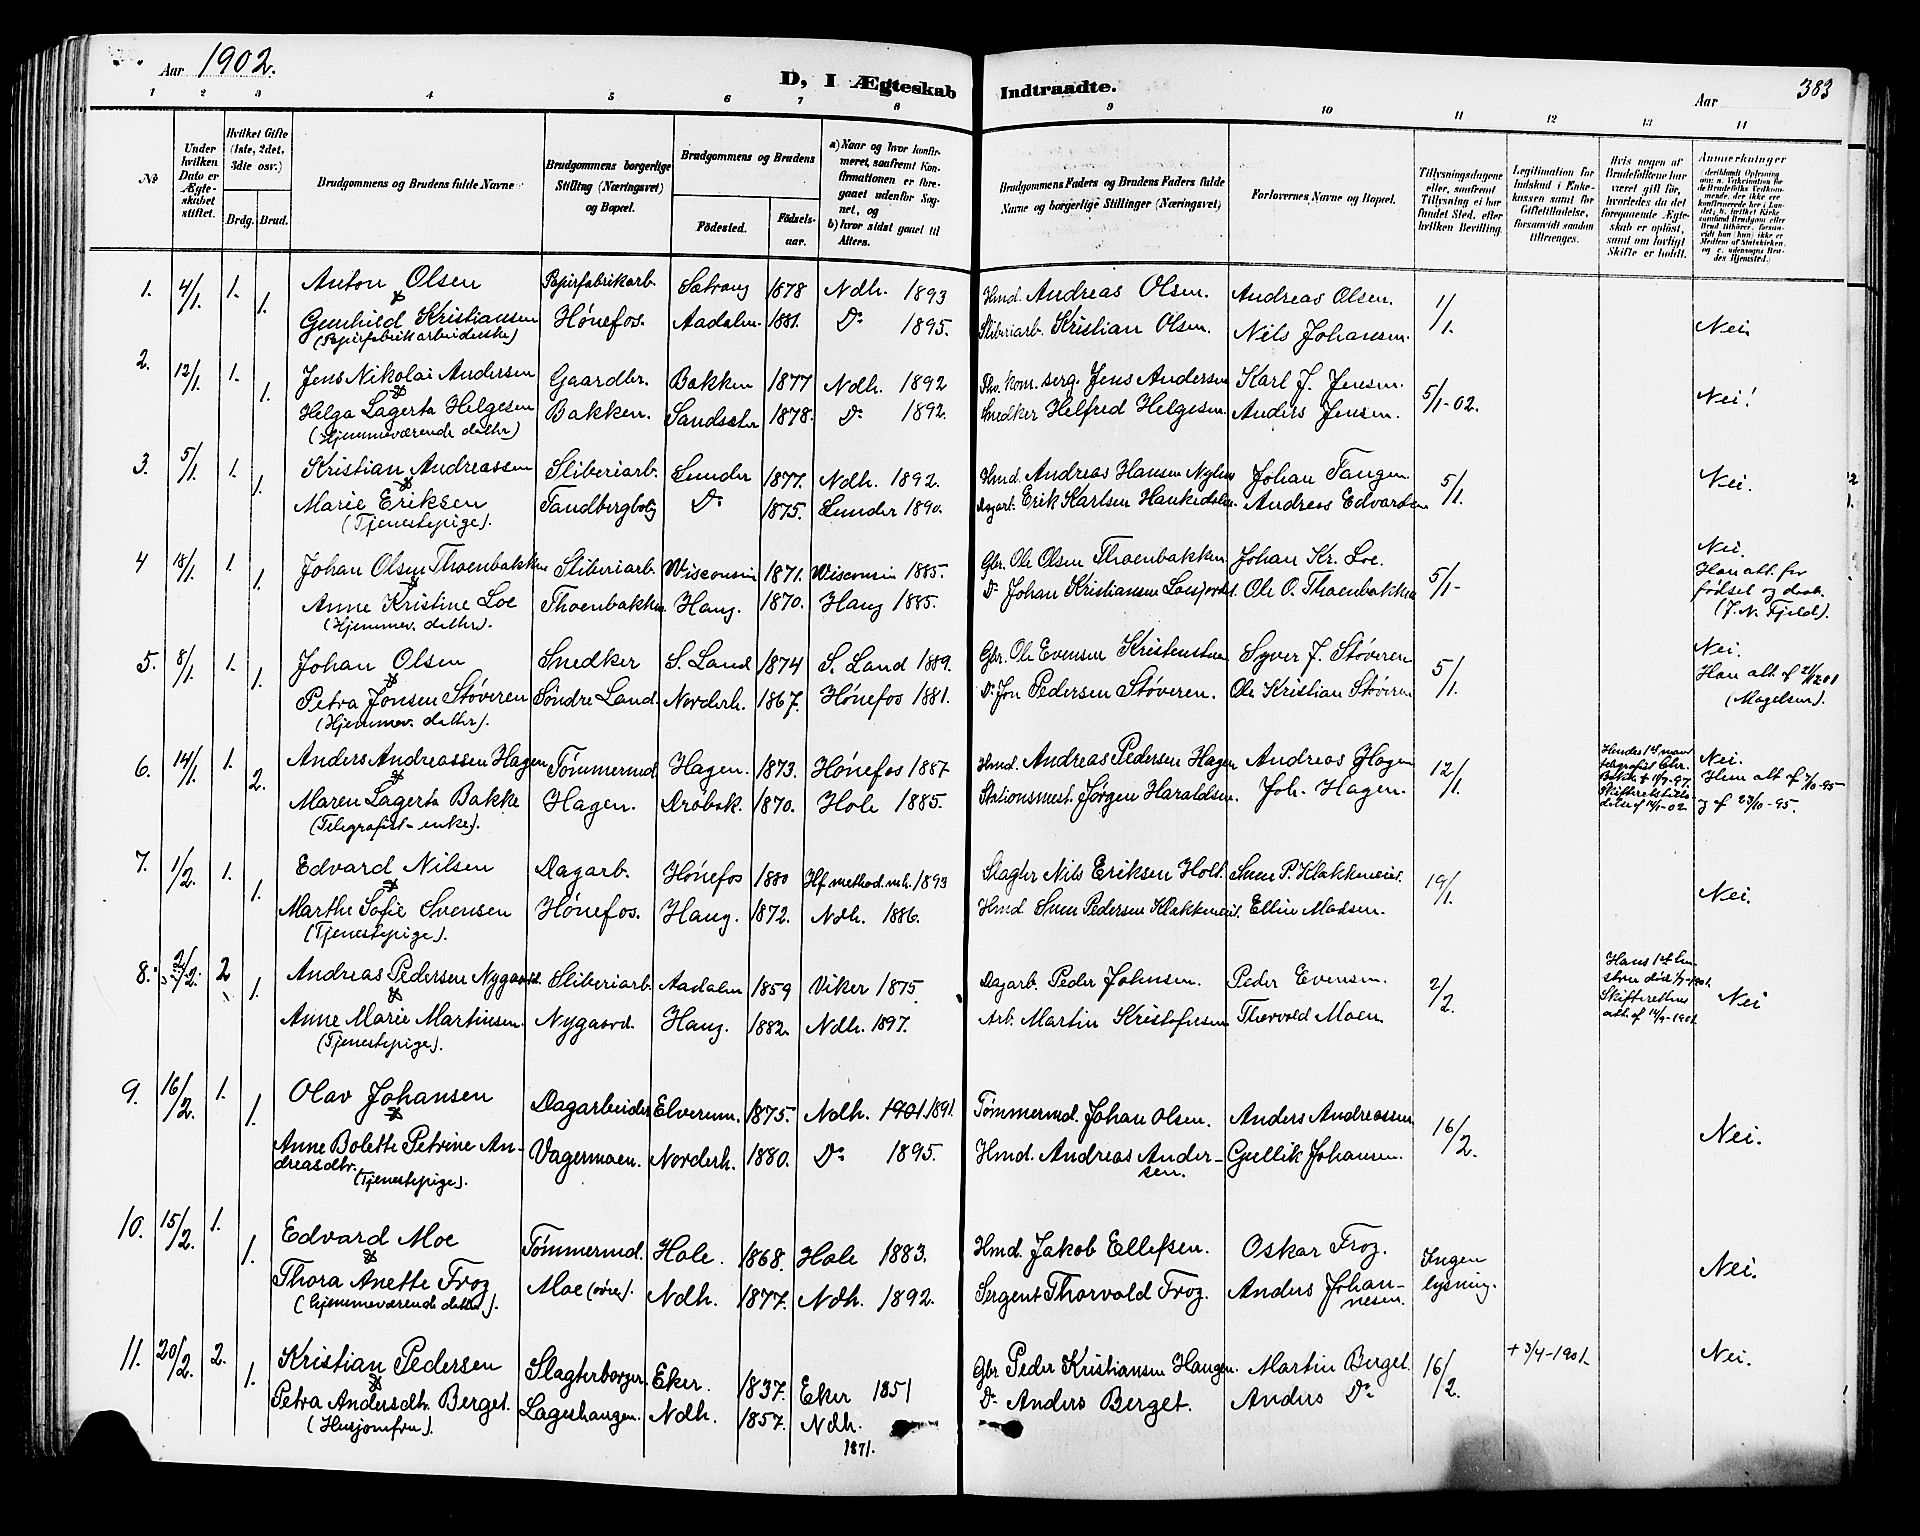 Aar 1902.
D, I Ægteskab Indtraadte.
Aar 383
1 2 3 4 5 6 7 8 9 10 11 12 13 14
No
Under hvilken Dato er Ægteskabet stiftet.
Hvilket Gifte (1ste, 2det, 3die osv.)
Brdg. Brud.
Brudgommens og Brudens fulde Navne
Brudgommens borgerlige Stilling (Næringsvei) og Bopæl.
Brudgommens og Brudens
Fødested. Fødselsaar.
a) Naar og hvor konfirmeret, saafremt Konfirmationen er foregaaet udenfor Sognet, og
b) hvor sidst gaaet til Alters.
Brudgommens Faders og Brudens Faders fulde Navne og borgerlige Stillinger (Næringsvei)
Forlovernes Navne og Bopæl.
Tillysningsdagene eller, saafremt Tillysning ei har fundet Sted, efter hvilken Bevilling.
Legitimation for Indskud i Enkekassen samt for Giftetilladelse, forsaavidt saadan tiltrænges.
Hvis nogen af Brudefolkene har været gift før, hvorledes da det foregaaende Ægteskab er opløst, samt om lovligt Skifte er holdt.
Anmerkninger
1. 4/1. 1. Anton Olsen Papirfabrikarb. Sætrang 1878 Ndh. 1893 Hmd. Andreas Olsen. Andreas Olsen. 1/1.
1. Gunhild Kristiansen Hønefos. Aadalen 1881. Do 1895. Sliberiarb. Kristian Olsen. Nils Johansen. Nei.
(Papirfabrikarbeiderske)
2. 12/1. 1. Jens Nikolai Andersen Gaardbr. Bakken 1877 Ndh. 1892 Fhv. kom. serg. Jens Andersen Karl J. Jensen. 5/1-02.
1. Helga Lagerta Helgesen Bakken. Sandsæter 1878. Do 1892. Snedker Helfred Helgesen Anders Jensen. Nei!
(Hjemmeværende datter)
3. 5/1. 1. Kristian Andreassen Sliberiarb. Lunder 1877. Ndh. 1892. Hmd. Andreas Hansen Nylus Johan Tangen. 5/1. Nei.
1. Marie Eriksen Tandbergbolig Do 1875. Lunder 1890. Dagarb. Erik Karlsen Hankedalen. Andreas Edvardsen
(Tjenestepige).
4 18/1. 1. Johan Olsen Thoenbakken Sliberiarb. Wisconsin 1871. Wisconsin 1885. Gbr. Ole Olsen Thoenbakken Johan Kr. Loe. 5/1- Nei.
Han att. for
1. Anne Kristine Loe Thoenbakken Haug. 1870. Haug 1885. Do Johan Kristiansen Loesjordet. Ole O. Thoenbakken fødsel og daab.
(Hjemmev. datter). (J. N. Fjeld).
5. 8/1. 1. Johan Olsen Snedker S. Land 1874 S. Land 1889. Gbr. Ole Evensen Kristenstuen Syver J. Støveren 5/1. Nei.
Han att. af 21/12 01
1. Petra Jonsen Støveren Søndre Land. Norderh. 1867. Hønefos 1881. Do Jon Pedersen Støveren. Ole Kristian Støveren (Magelsen).
(Hjemmev. datter).
6. 14/1. 1. Anders Andreassen Hagen Tømmermd. Hagen. 1873. Hønefos 1887 Hmd. Andreas Pedersen Hagen Andreas Hagen 12/1. Hendes 1st mand telegrafist Chr. Bakke † 11/9-97. Nei.
Hun att af 7/10-95
2. Maren Lagerta Bakke Hagen. Drøbak. 1870. Hole 1885. Stationsmest. Jørgen Haraldsen. Joh. Hagen. Skifteretstilladelse af 14/1-02. og af 23/10-95.
(Telegrafist-enke).
7. 1/2. 1. Edvard Nilsen Dagarb. Hønefos 1880 Hf. method. mh. 1893 Slagter Nils Eriksen Holt. Sven P. Klækkeneiet. 19/1.
1. Marthe Sofie Svensen Hønefos. Haug. 1872. Ndh. 1886. Hmd. Sven Pedersen Klækkeneiet. Ellin Madsen. Nei.
(Tjenestepige).
8. 2/2. 2 Andreas Pedersen Nygaard. Sliberiarb. Aadalen 1859 Viker 1875. Dagarb. Peder Johnsen. Peder Evensen. 2/2. Hans 1st hustru død 1/7-1901.
1. Anne Marie Martinsen. Nygaard. Haug. 1882. Ndh. 1897. Arb. Martin Kristofersen Thorvald Moen Skifterettens att. af 14/9-1901. Nei
(Tjenestepige).
9. 16/2. 1. Olav Johansen Dagarbeider Elverum. 1875. Ndh. 1901. 1891. Tømmermd. Johan Olsen. Anders Andreassen 16/2.
1. Anne Bolette Petrine Andreasdtr. Vagermoen. Norderh. 1880. Do 1895. Hmd. Andreas Andersen. Gullik Johansen. Nei.
(Tjenestepige).
10. 15/2. 1. Edvard Moe Tømmermd. Hole. 1868. Hole 1883. Hmd. Jakob Ellefsen. Oskar Frog. Ingen lysning.
1. Thora Anette Frog Moe (øvre). Ndh. 1877. Ndh. 1892. Sergent Thorvald Frog. Anders Johannesen. Nei.
(hjemmeværende datter).
11. 20/2. 2. Kristian Pedersen Slagterborger Eker. 1837. Eker 1851 Gbr Peder Kristiansen Haugen. Martin Berget. 16/2. + 3/4-1901. Nei.
1. Petra Andersdtr. Berget. Lageshaugen. Ndh. 1857. Ndh. 1871. Do Anders Berget. Anders Do
(Husjomfru).